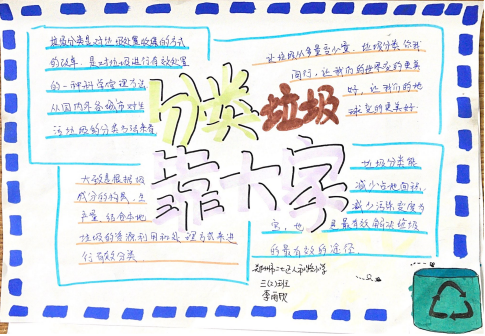 垃圾分类是对垃圾处置收集的方式
的改革,是对垃圾进行有效处置
的一种科学管理方法
从国内外各城市对生
活垃圾的分类方法来看
让垃圾从多量变少量,垃圾分类你我
同行,让我们的世界变的更美
好,让我们的地
球变的更美好
分类垃圾
靠大家
大致是根据垃
成分的构成,生
产量,结合本地
垃圾的资源利用和处理方式来进
行有效分类
垃圾分类能
减少占地面积,
减少污染
也 是最有效解决垃圾
的最有效的途径
三(2)班